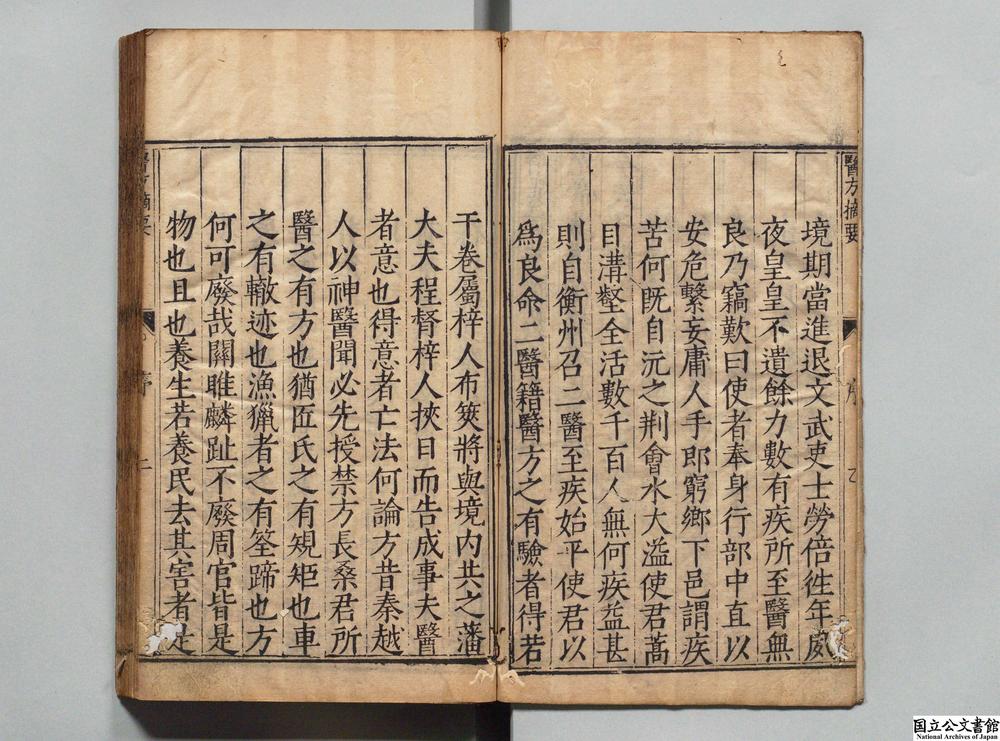 醫方摘要
序
境期當進退文武吏士勞倍徃年夙
夜皇皇不遺餘力數有疾所至醫無
良乃竊歎曰使者奉身行部中直以
安危繫妄庸人手即窮鄉下邑謂疾
苦何既自沅之荆會水大溢使君蒿
目溝壑全活數千百人無何疾益甚
則自衡州召二醫至疾始平使君以
爲良命二醫籍醫方之有驗者得若
干卷屬梓人布筴將與境内共之藩
大夫程督梓人挾日而告成事夫醫
者意也得意者亡法何論方昔秦越
人以神醫聞必先授禁方長桑君所
醫之有方也猶匠氏之有規矩也車
之有轍迹也漁獵者之有筌蹄也方
何可廢哉關雎麟趾不廢周官皆是
物也且也養生若養民去其害者是
醫方摘要
序
二
国立公文書館
National Archives of Japan